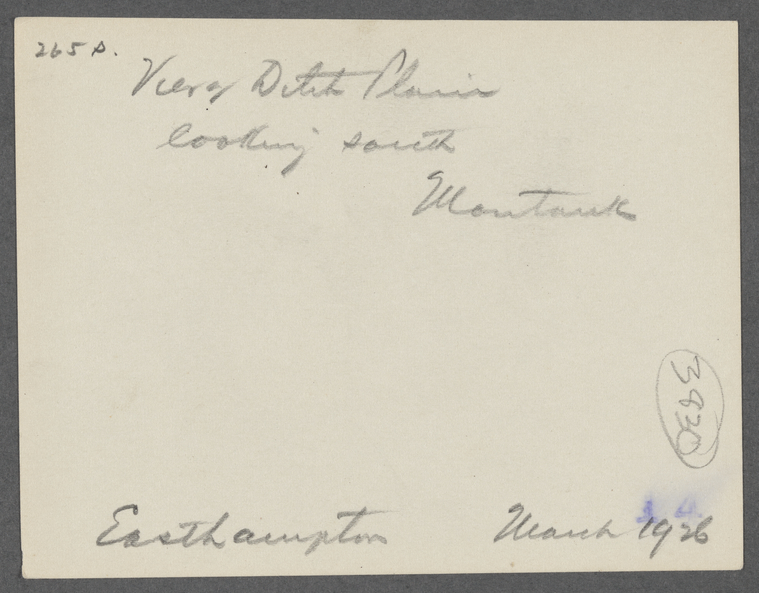 265 D.
View Ditch Plain
looking south
Montauk
3930
Easthampton March 1926